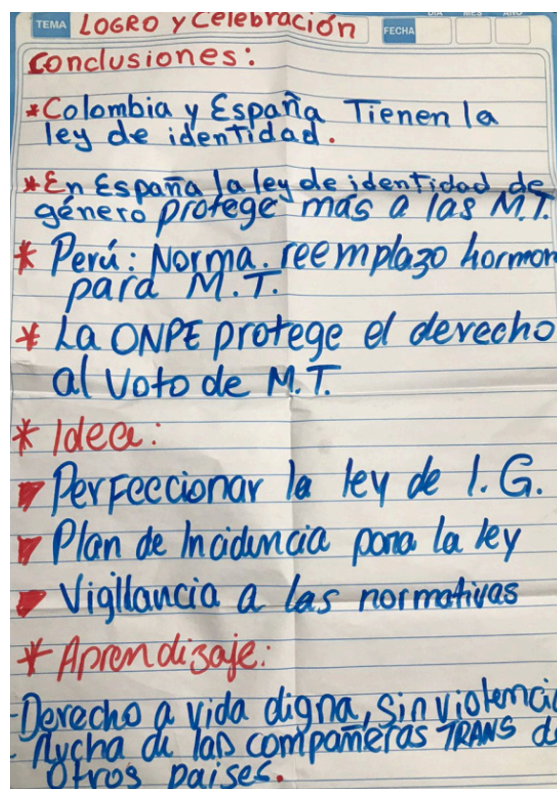 TEMA LOGRO y Celebración FECHA DIA MES AÑO
Conclusiones:
*Colombia y España Tienen la
ley de identidad.
*En España la ley de identidad de
género protege más a las M.T.
* Perú: Norma. reemplazo hormon
para M.T.
* La ONPE protege el derecho
al Voto de M.T.
* Idea:
Perfeccionar la ley de I.G.
Plan de Incidencia para la ley
Vigilancia a las normativas
* Aprendizaje:
-Derecho a vida digna, sin violencia
- lucha de las compañeras TRANS de
otros paises.